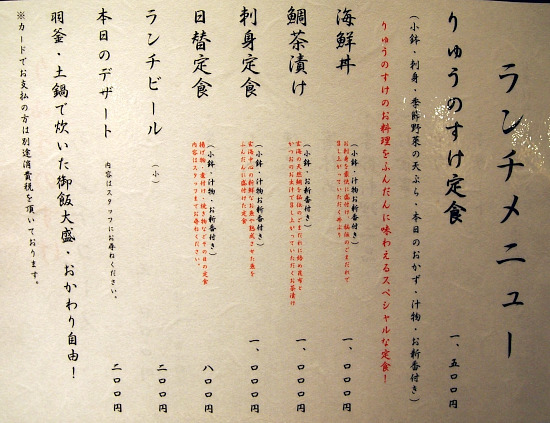 ランチメニュー
りゅうのすけ定食 一、五〇〇円
(小鉢・刺身・季節野菜の天ぷら・本日のおかず・汁物・お新香付き)
りゅうのすけのお料理をふんだんに味わえるスペシャルな定食!
海鮮丼 一、〇〇〇円
(小鉢・汁物お新香付き)
鯛茶漬け 一、〇〇〇円
(小鉢・お新香付き)
刺身定食 一、〇〇〇円
(小鉢・汁物お新香付き)
日替定食 八〇〇円
(小鉢・汁物・お新香付き)
揚げ物・煮付け・焼き物などその日の定食
内容はスタッフまでお尋ねください。
ランチビール (小) 二〇〇円
本日のデザート 内容はスタッフにお尋ねください。 二〇〇円
羽釜・土鍋で炊いた御飯大盛・おかわり自由!
※カードでお支払の方は別途消費税を頂いております。